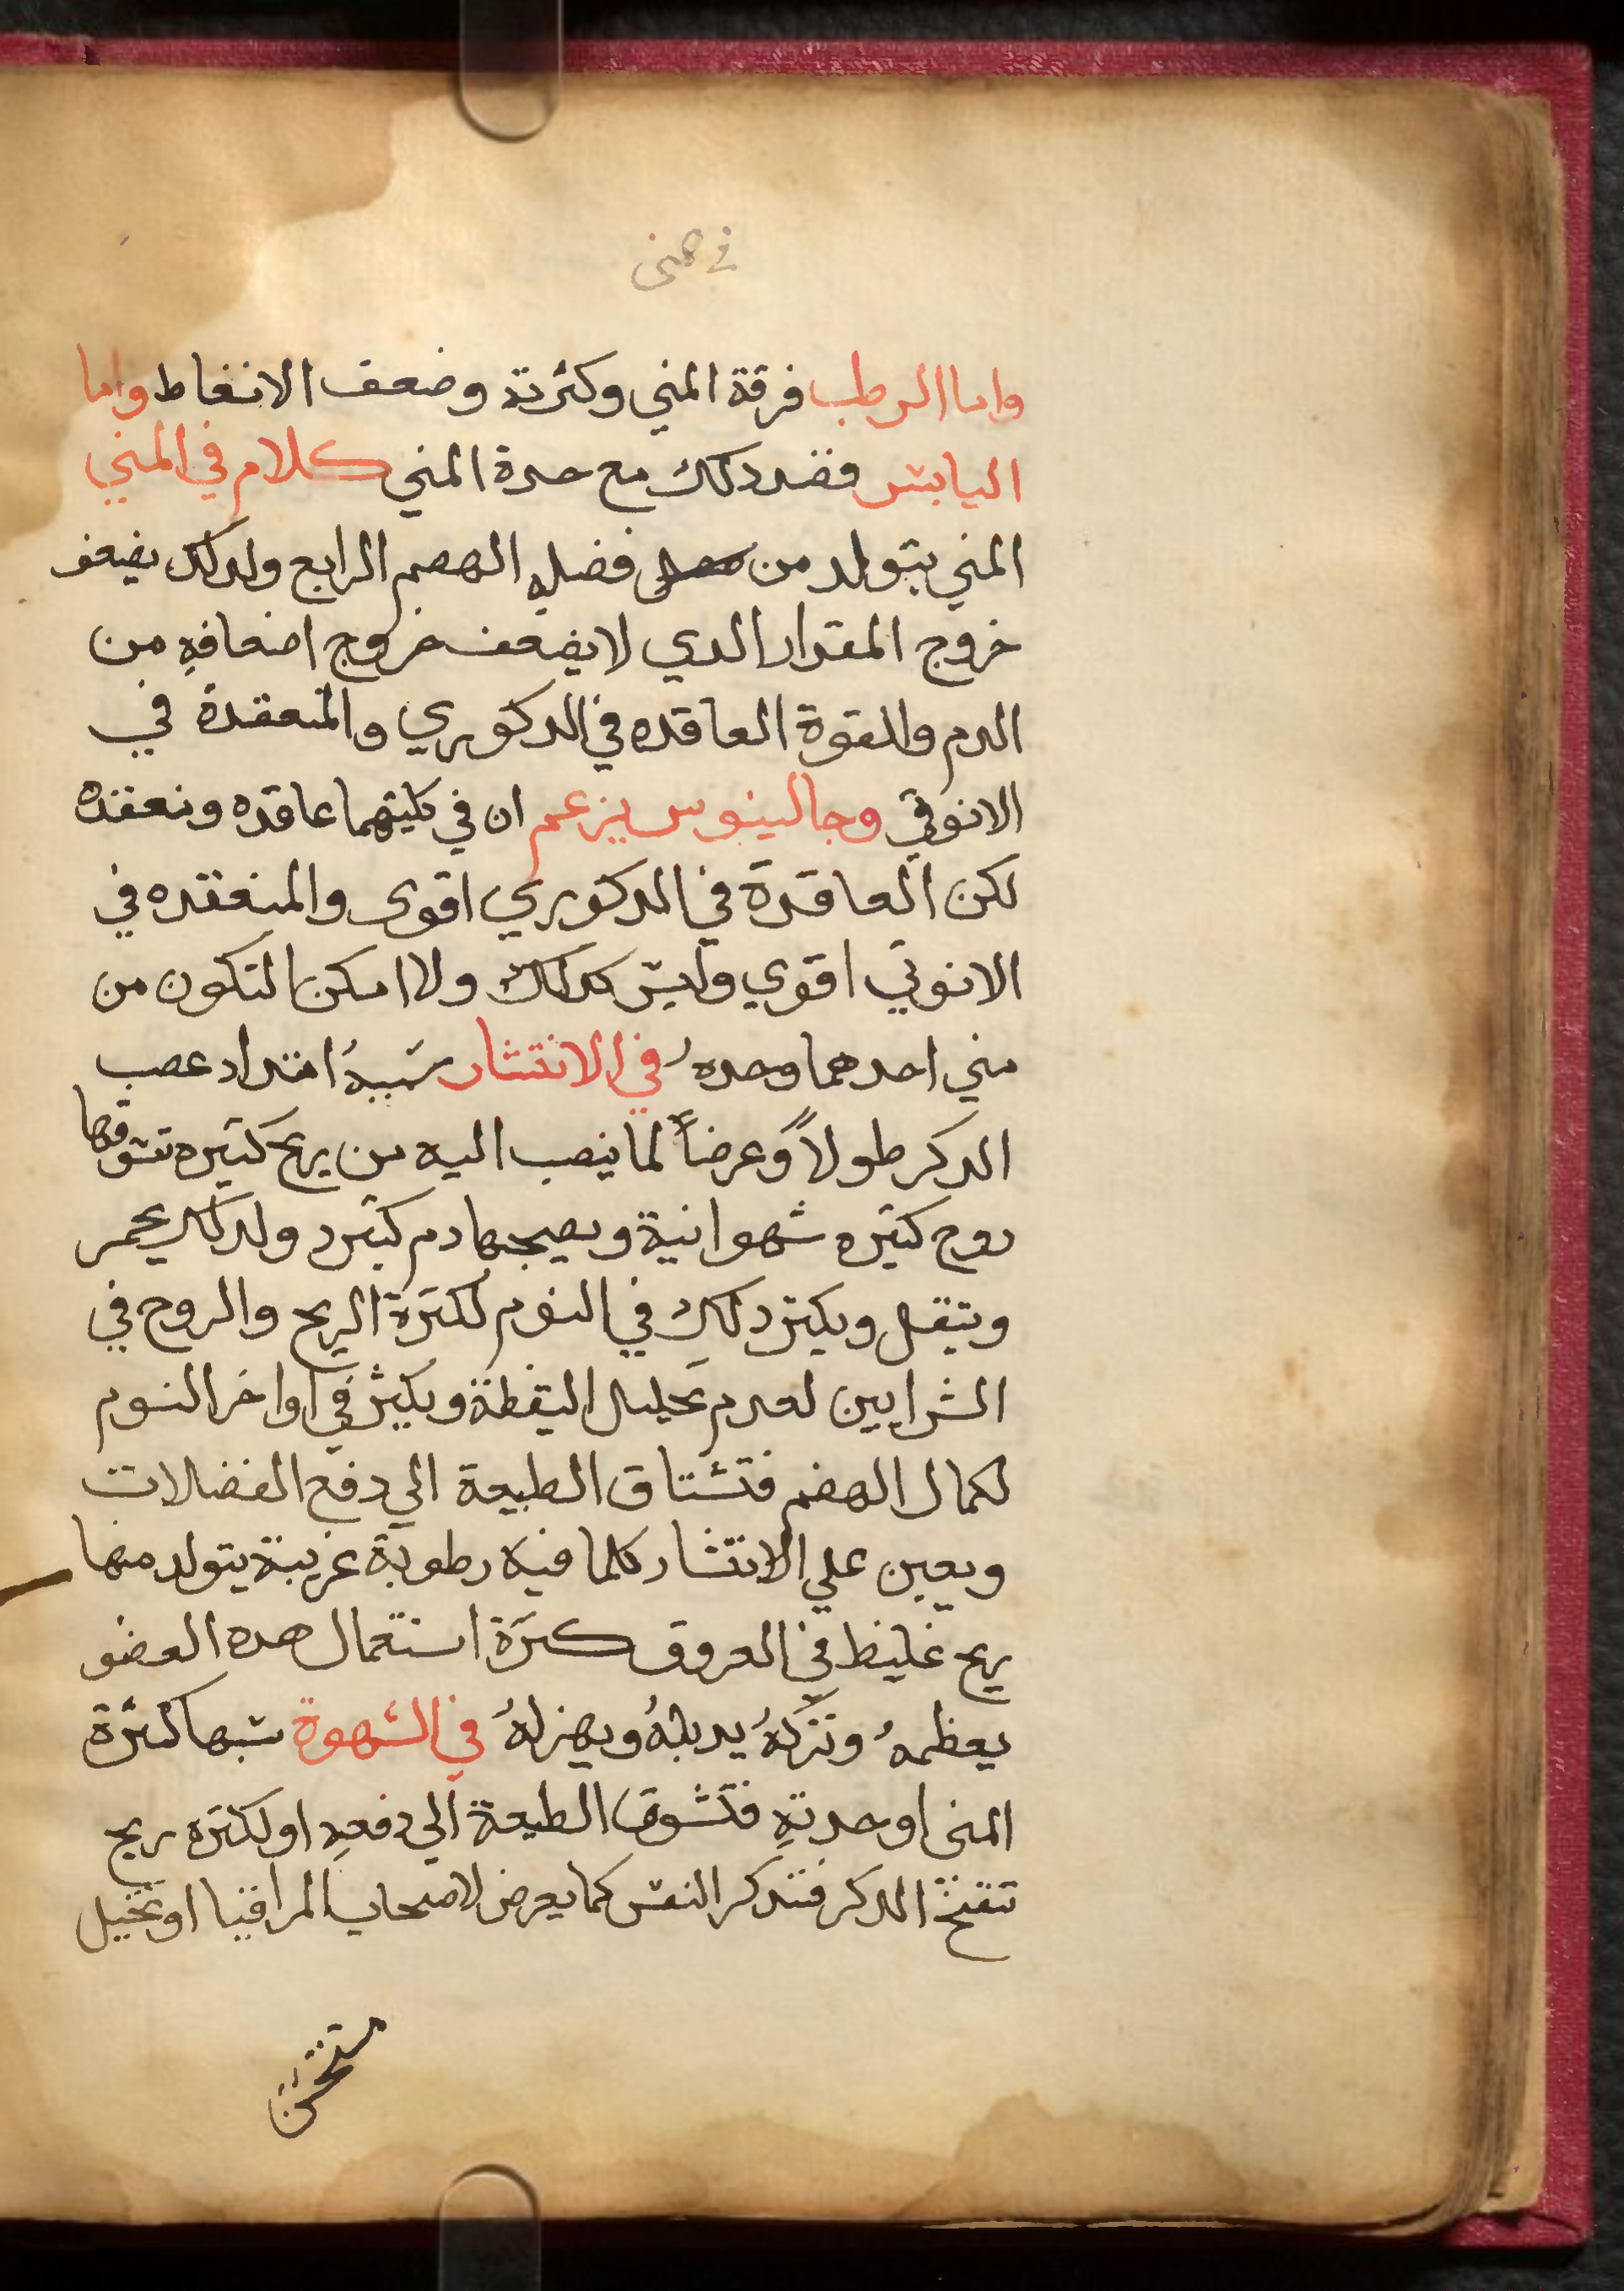 واما الرطب فرقة المني وكثرتة وضعف الانغاط واما
اليابس فضد دلك مع حدة المني كلام في المني
المني يتولد من فضله الهضم الرابع ولدلك يضعف
خروج المقدار الدي لا يضعف خروج اضعافه من
الدم والقوة العاقده في الدكوري والمنعقدة في
الانوتي وجالينوس يزعم ان في كليتهما عاقده ومنعقده
لكن العاقدة في الدكوري اقوى والمنعقده في
الانوتي اقوي وليس كدلك ولا امكن التكون من
مني احدهما وحدهُ في الانتشار سَببهُ امتداد عصب
الدكر طولاً وعرضاً لما ينصب اليه من ريح كتيره تسوقها
روح كتيره شهوانية ويصحبها دم كتير ولدلك يحمر
ويتقل ويكتر دلك في النوم لكترة الريح والروح في
الشرايين لعدم تحليل اليقظة ويكثر في اواخر النوم
لكمال الهضم فتشتاق الطبيعة الي دفع الفضلات
ويعين علي الانتشار كلما فيه رطوبة غريبة يتولد منها
ريح غليظ في العروق كترة استعمال هده العضو
يعظمهُ وتركهُ يدبلهُ ويهزلهُ في الشهوة سببها كثرة
المنى او حدته فتشوق الطبيعة الي دفعه او لكتره ريح
تنفخ الدكر فتتدكر النفس كما يعرض لاصحاب المراقيا او تخيل